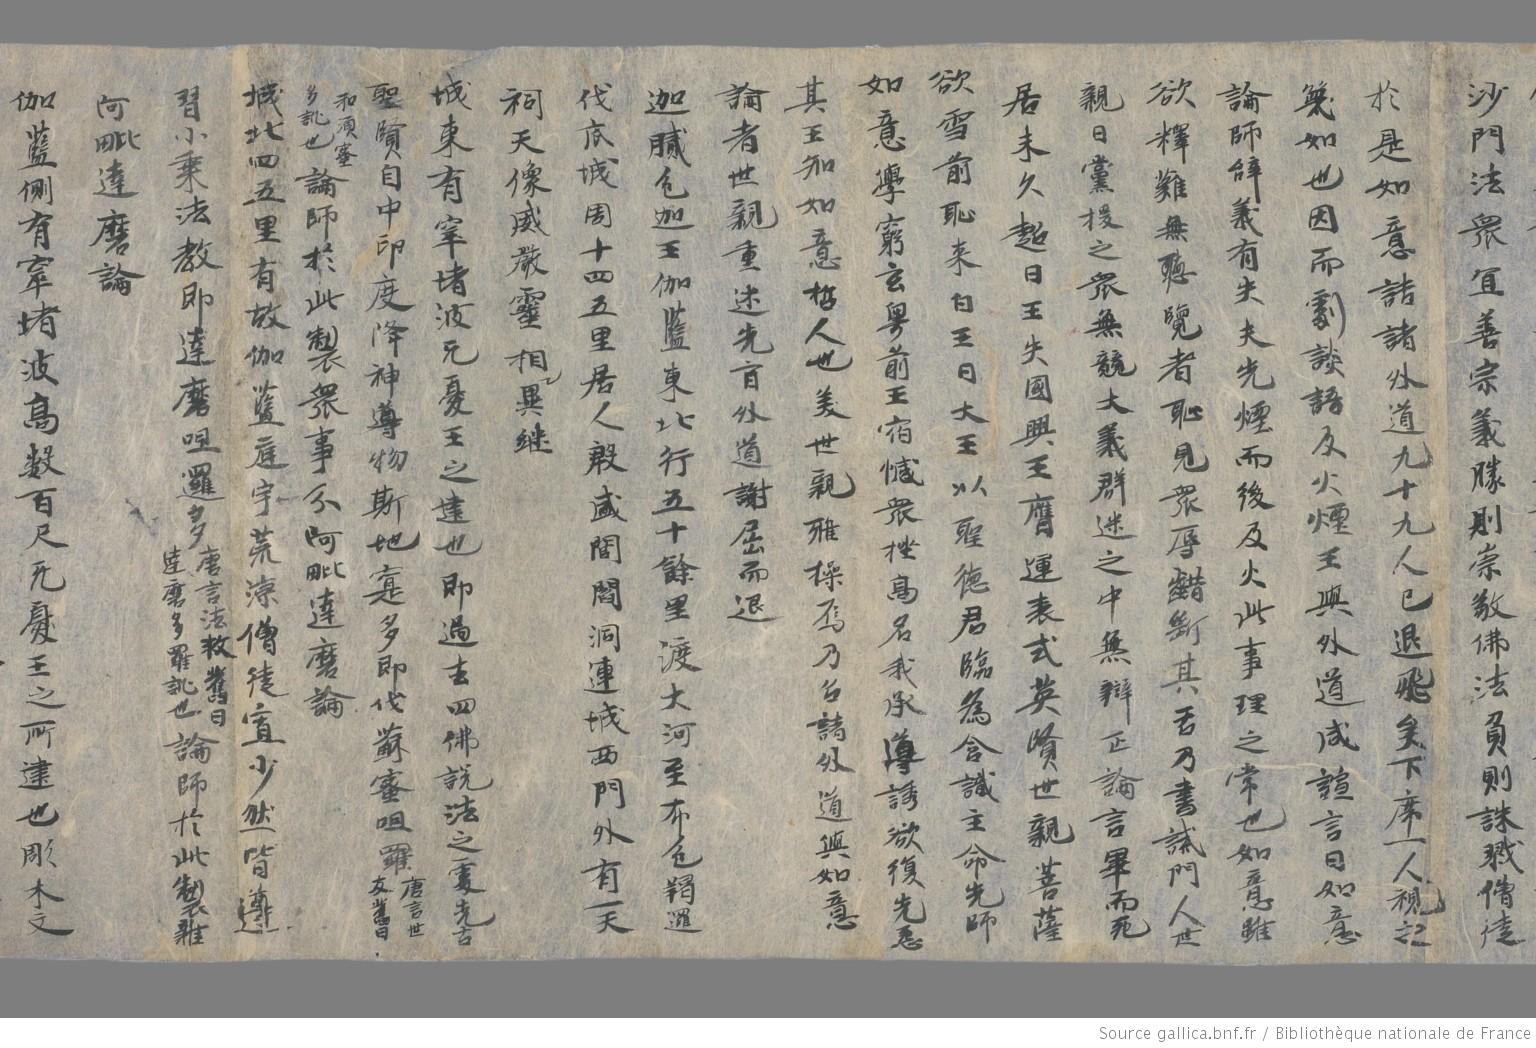 沙門法衆宜善宗義勝則崇敬佛法負則誅戮僧徒
於是如意詰諸外道九十九人已退飛矣下席一人視之
蔑如也因而劇談語及火煙王與外道咸諠言曰如意
論師辭義有失夫先煙而後及火此事理之常也如意雖
欲釋難無聽覽者恥見衆辱齰斷其舌乃書誡門人世
親曰黨援之衆無競大義群迷之中無辯正論言畢而死
居未久超日王失國興王膺運表式英賢世親菩薩
欲雪前恥来白王曰大王以聖德君臨為含識主命先師
如意學窮玄奥前王宿憾衆挫高名我承導誘欲復先怨
其王知如意哲人也美世親雅操焉乃召諸外道與如意
論者世親重述先旨外道謝屈而退
迦膩色迦王伽藍東北行五十餘里渡大河至布色羯邏
伐底城周十四五里居人殷盛閭閻洞連城西門外有一天
祠天像威嚴靈相異継
城東有窣堵波无憂王之建也即過去四佛說法之處先古
聖賢自中印度降神導物斯地寔多即伐蘇蜜呾羅唐言世友舊曰
和須蜜多訛也論師於此製衆事分阿毗達磨論
城北四五里有故伽藍庭宇荒涼僧徒寡少然皆遵
習小乘法教即達磨呾邏多唐言法救舊曰達磨多羅訛也論師於此製雜
阿毗達磨論
伽藍側有窣堵波高數百尺无憂王之所建也彫木文
Source gallica.bnf.fr / Bibliothèque nationale de France